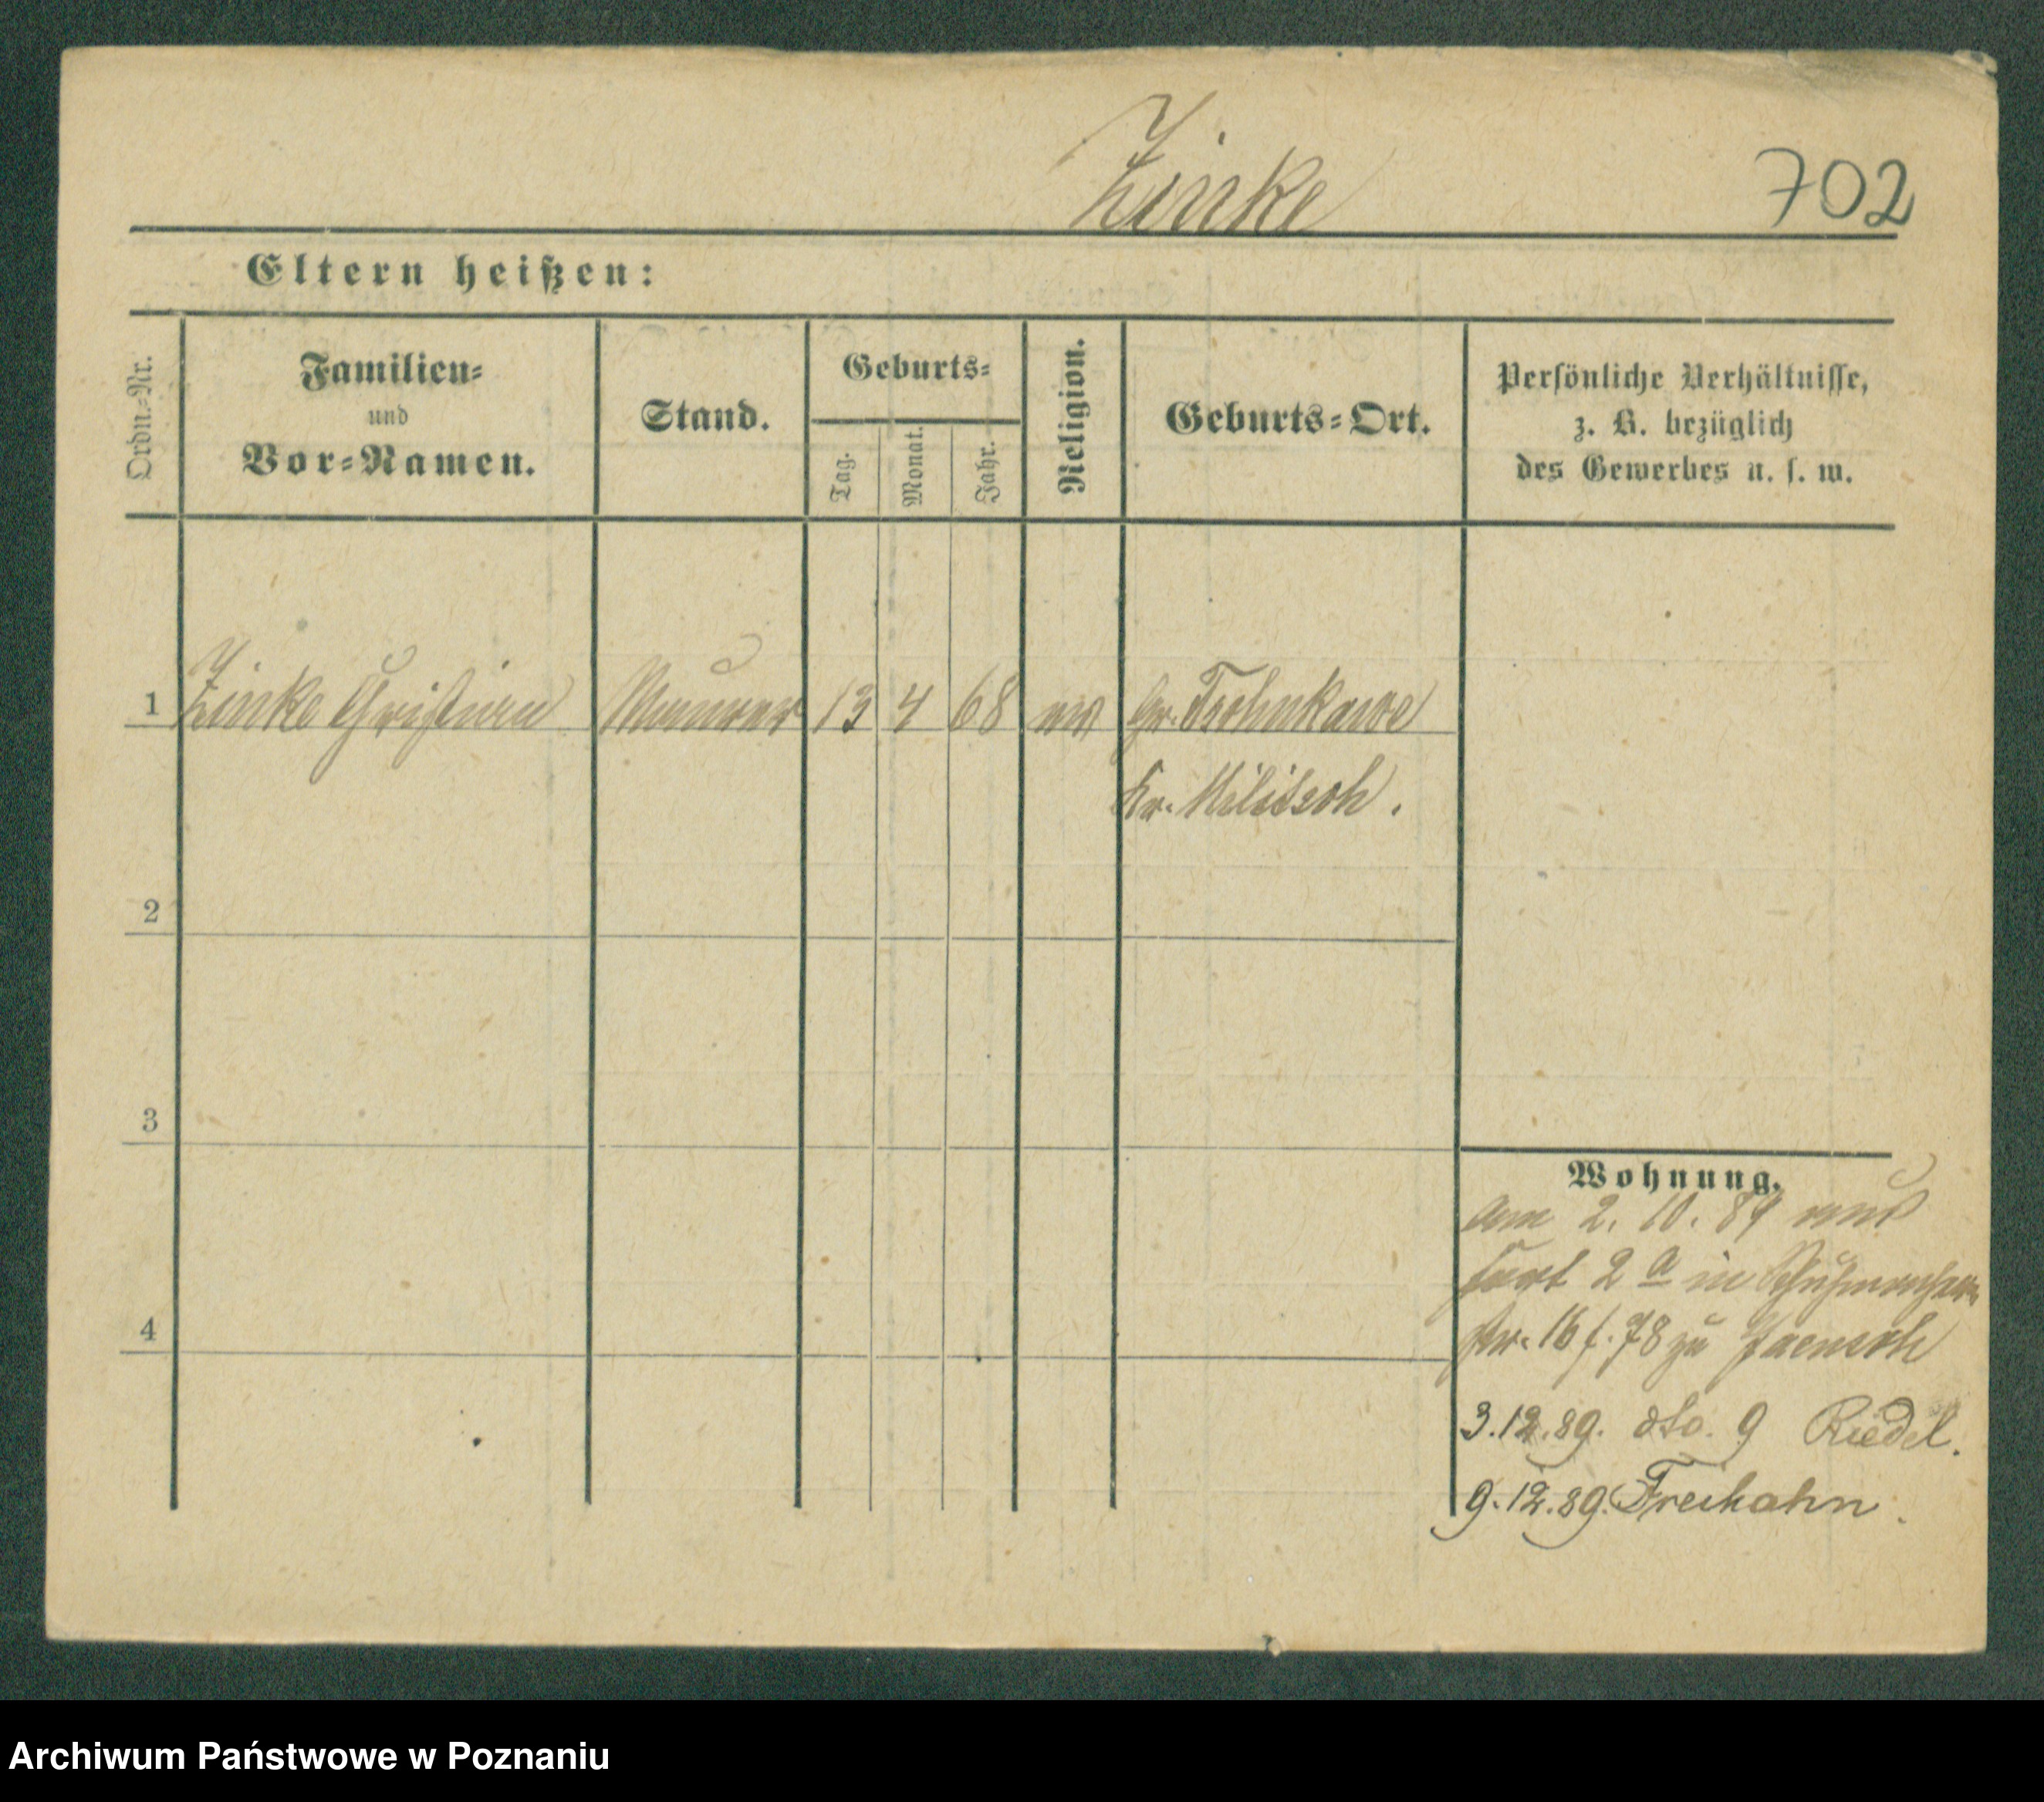 Zinke
702
Eltern heißen:
Ordn.-Nr.
Familien-
und
Vor-Namen.
Stand.
Geburts-
Tag.
Monat.
Jahr.
Religion.
Geburts-Ort.
Persönliche Verhältnisse,
z. B. bezüglich
des Gewerbes u. s. w.
1 Zinke Christian Maurer 13 4 68 ev Gr. Tschunkawe
Kr. Militsch.
2
3
4
Wohnung.
am 2. 10. 89 aus
2 a in
str. 16 b. 78 zu Jaensch
3.12.89. dto. 9 Riedel.
9.12.89. Freihahn.
Archiwum Państwowe w Poznaniu